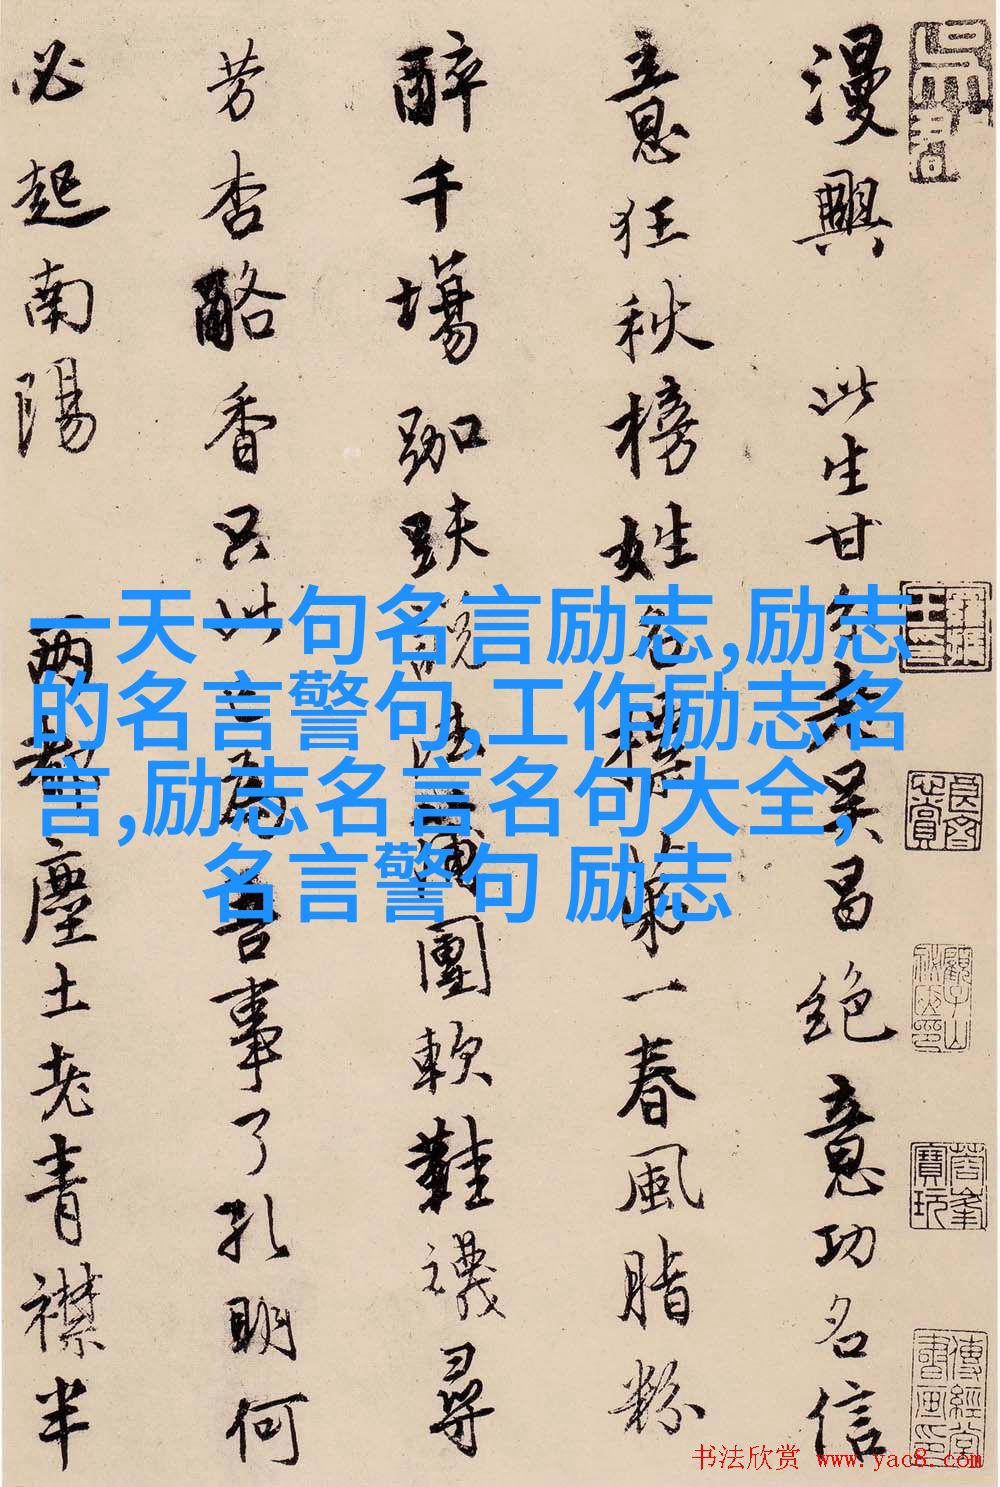 漫興 此生甘分老吳昌絕意功名信
意狂秋榜姓名標第一春風脂粉
醉千場跏趺說法蒲團軟鞋襪尋
芳杏酪香只此便為吾事了孔明何
必起南陽 兩都塵土老青襟半
一天一句名言励志,励志
的名言警句,工作励志名
言,励志名言名句大全,
名言警句 励志
书法欣赏 www.yac8.com